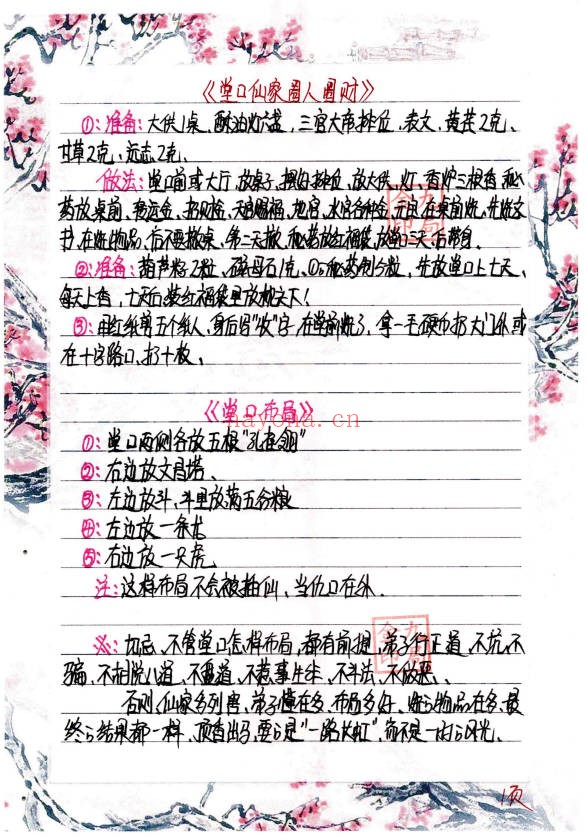 《堂口仙家圈人圈财》
①:准备:大供1桌、酥油灯六盏、三官大帝排位、表文、黄芪2克、
甘草2克、远志2克、
做法:堂口前或大厅、放桌子、摆好排位、放大供、灯、香炉三根香、秘
药放桌前、贵运金、天官赐福、地官、水官各种金、元宝、在桌前烧、先烧文
书、在烧物品、后不要撤桌、第二天撤、秘药放红福袋、放堂口三天、后带身、
②:准备:葫芦籽2粒、磁母石1克、秘药制分粒、先放堂口上七天、
每天上香、七天后装红福袋里放
③:用红纸剪五个纸人、身后写"收"字、在堂前烧了、拿一毛硬币扔大门外或
在十字路口、扔十枚、
《堂口布局》
①:堂口两侧各放五根"孔雀翎"
②:右边放文昌塔、
③:左边放斗、斗里放满五谷粮
④:左边放一条龙
⑤:右边放一只虎、
注:这样布局不会被抽仙、当仇口在外.
※:切忌、不管堂口怎样布局、都有前提、弟子行正道、不坑、不
骗、不胡说八道、不乱道、不惹事生非、不斗法、不做恶、
否则、仙家多厉害、弟子懂在多、布局多好、烧的物品在多、最
终的结果都一样、顶香出马、要的是"一路长虹"、而不是一时的风光、
1页
hayona.cn